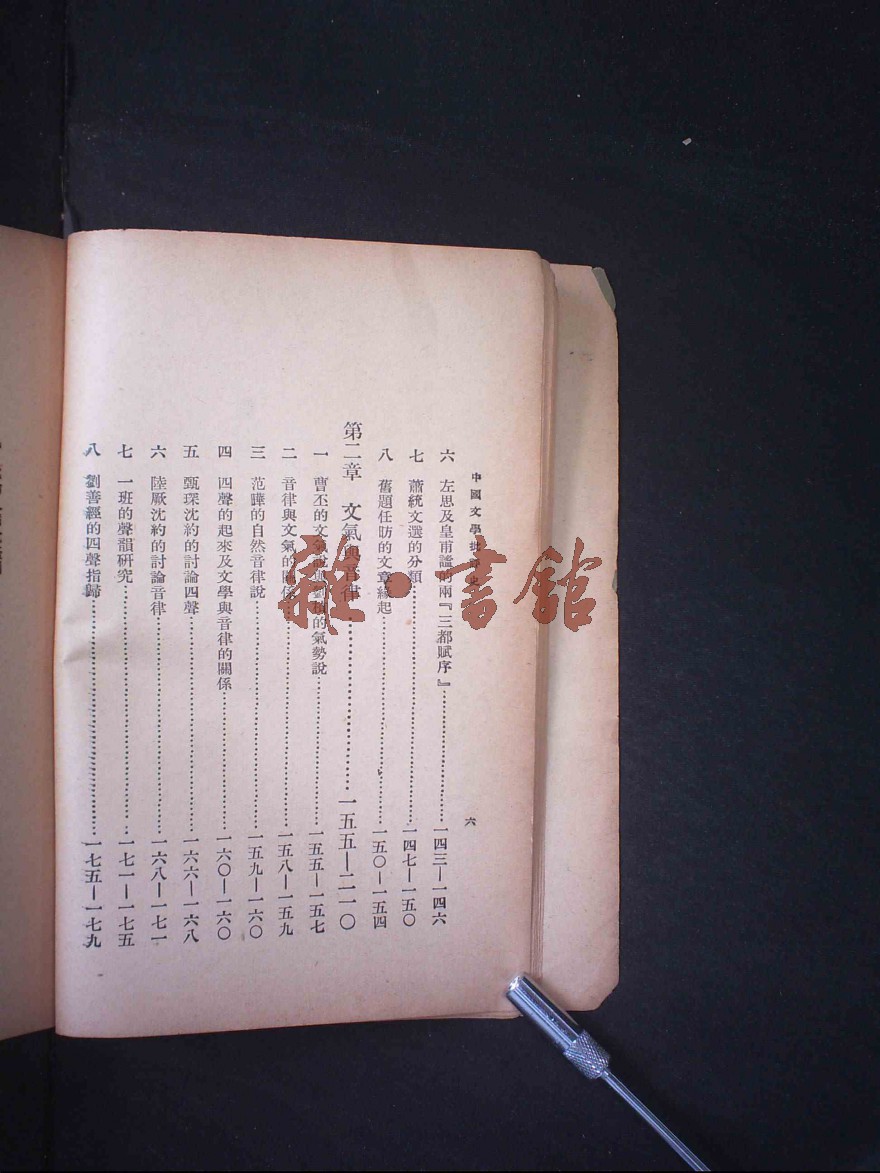 中國文學批評史
六
六 左思及皇甫謐的兩『三都賦序』……一四三—一四六
七 蕭統文選的分類……一四七—一五〇
八 舊題任昉的文章緣起……一五〇—一五四
第二章 文氣與音律……一五五—二一〇
一 曹丕的文氣說與劉楨的氣勢說……一五五—一五七
二 音律與文氣的關係……一五八—一五九
三 范曄的自然音律說……一五九—一六〇
四 四聲的起來及文學與音律的關係……一六〇—一六〇
五 甄琛沈約的討論四聲……一六六—一六八
六 陸厥沈約的討論音律……一六八—一七一
七 一班的聲韻研究……一七一—一七五
八 劉善經的四聲指歸……一七五—一七九
雜·書館